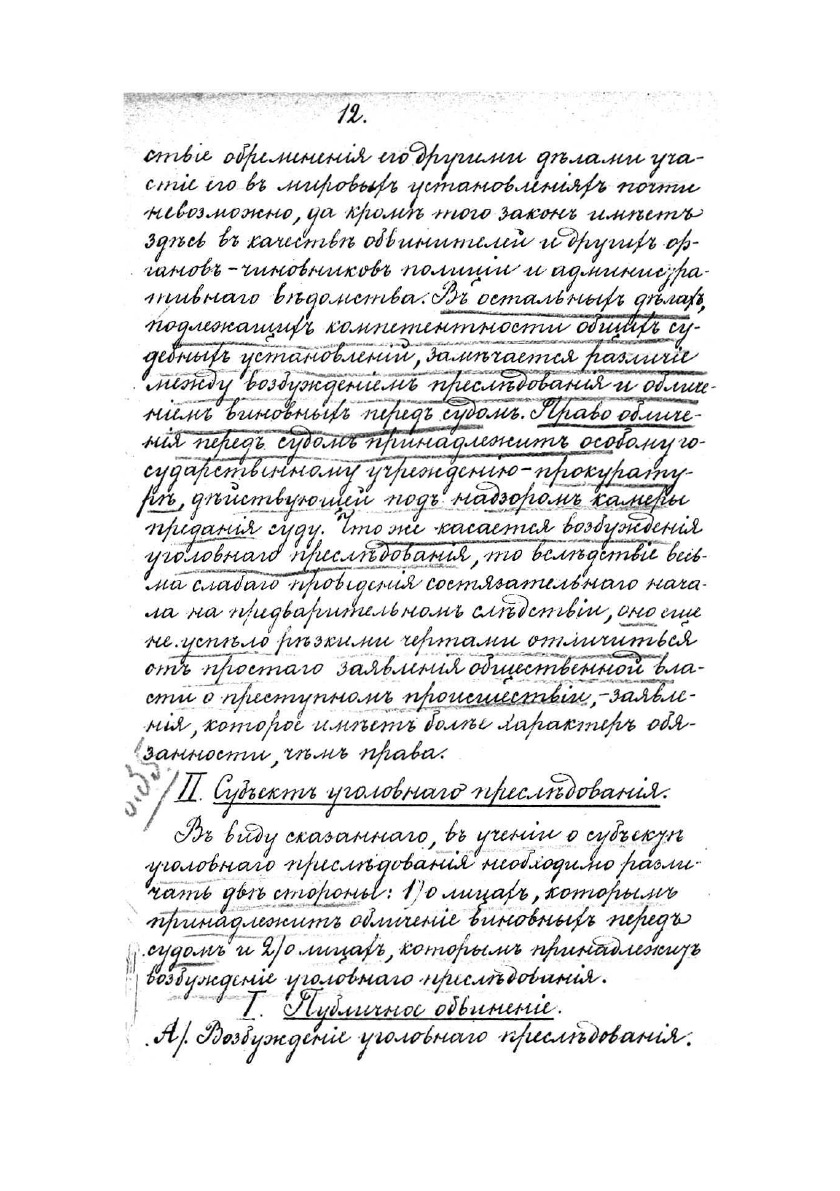 12.
ствіе обремененія его другими дѣлами уча-
стіе его въ мировыхъ установленіяхъ почти
невозможно, да кромѣ того законъ имѣетъ
здѣсь въ качествѣ обвинителей и другихъ ор-
гановъ-чиновниковъ полиціи и администра-
тивнаго вѣдомства. Въ остальныхъ дѣлахъ,
подлежащихъ компетентности общихъ су-
дебныхъ установленій, замѣчается различіе
между возбужденіемъ преслѣдованія и обличе-
ніемъ виновныхъ передъ судомъ. Право обличе-
нія передъ судомъ принадлежитъ особому го-
сударственному учрежденію-прокурату-
рѣ, дѣйствующей подъ надзоромъ камеры
преданія суду. Что же касается возбужденія
уголовнаго преслѣдованія, то вслѣдствіе весь-
ма слабаго проведенія состязательнаго нача-
ла на предварительномъ слѣдствіи, оно еще
не успѣло рѣзкими чертами отличиться
отъ простаго заявленія общественной вла-
сти о преступномъ происшествіи,-заявле-
нія, которое имѣетъ болѣе характеръ обя-
занности, чѣмъ права.
II. Субъектъ уголовнаго преслѣдованія.
Въ виду сказаннаго, въ ученіи о субъектѣ
уголовнаго преслѣдованія необходимо разли-
чать двѣ стороны: 1) о лицахъ, которымъ
принадлежитъ обличеніе виновныхъ передъ
судомъ и 2) о лицахъ, которымъ принадлежитъ
возбужденіе уголовнаго преслѣдованія.
I. Публичное обвиненіе.
А). Возбужденіе уголовнаго преслѣдованія.